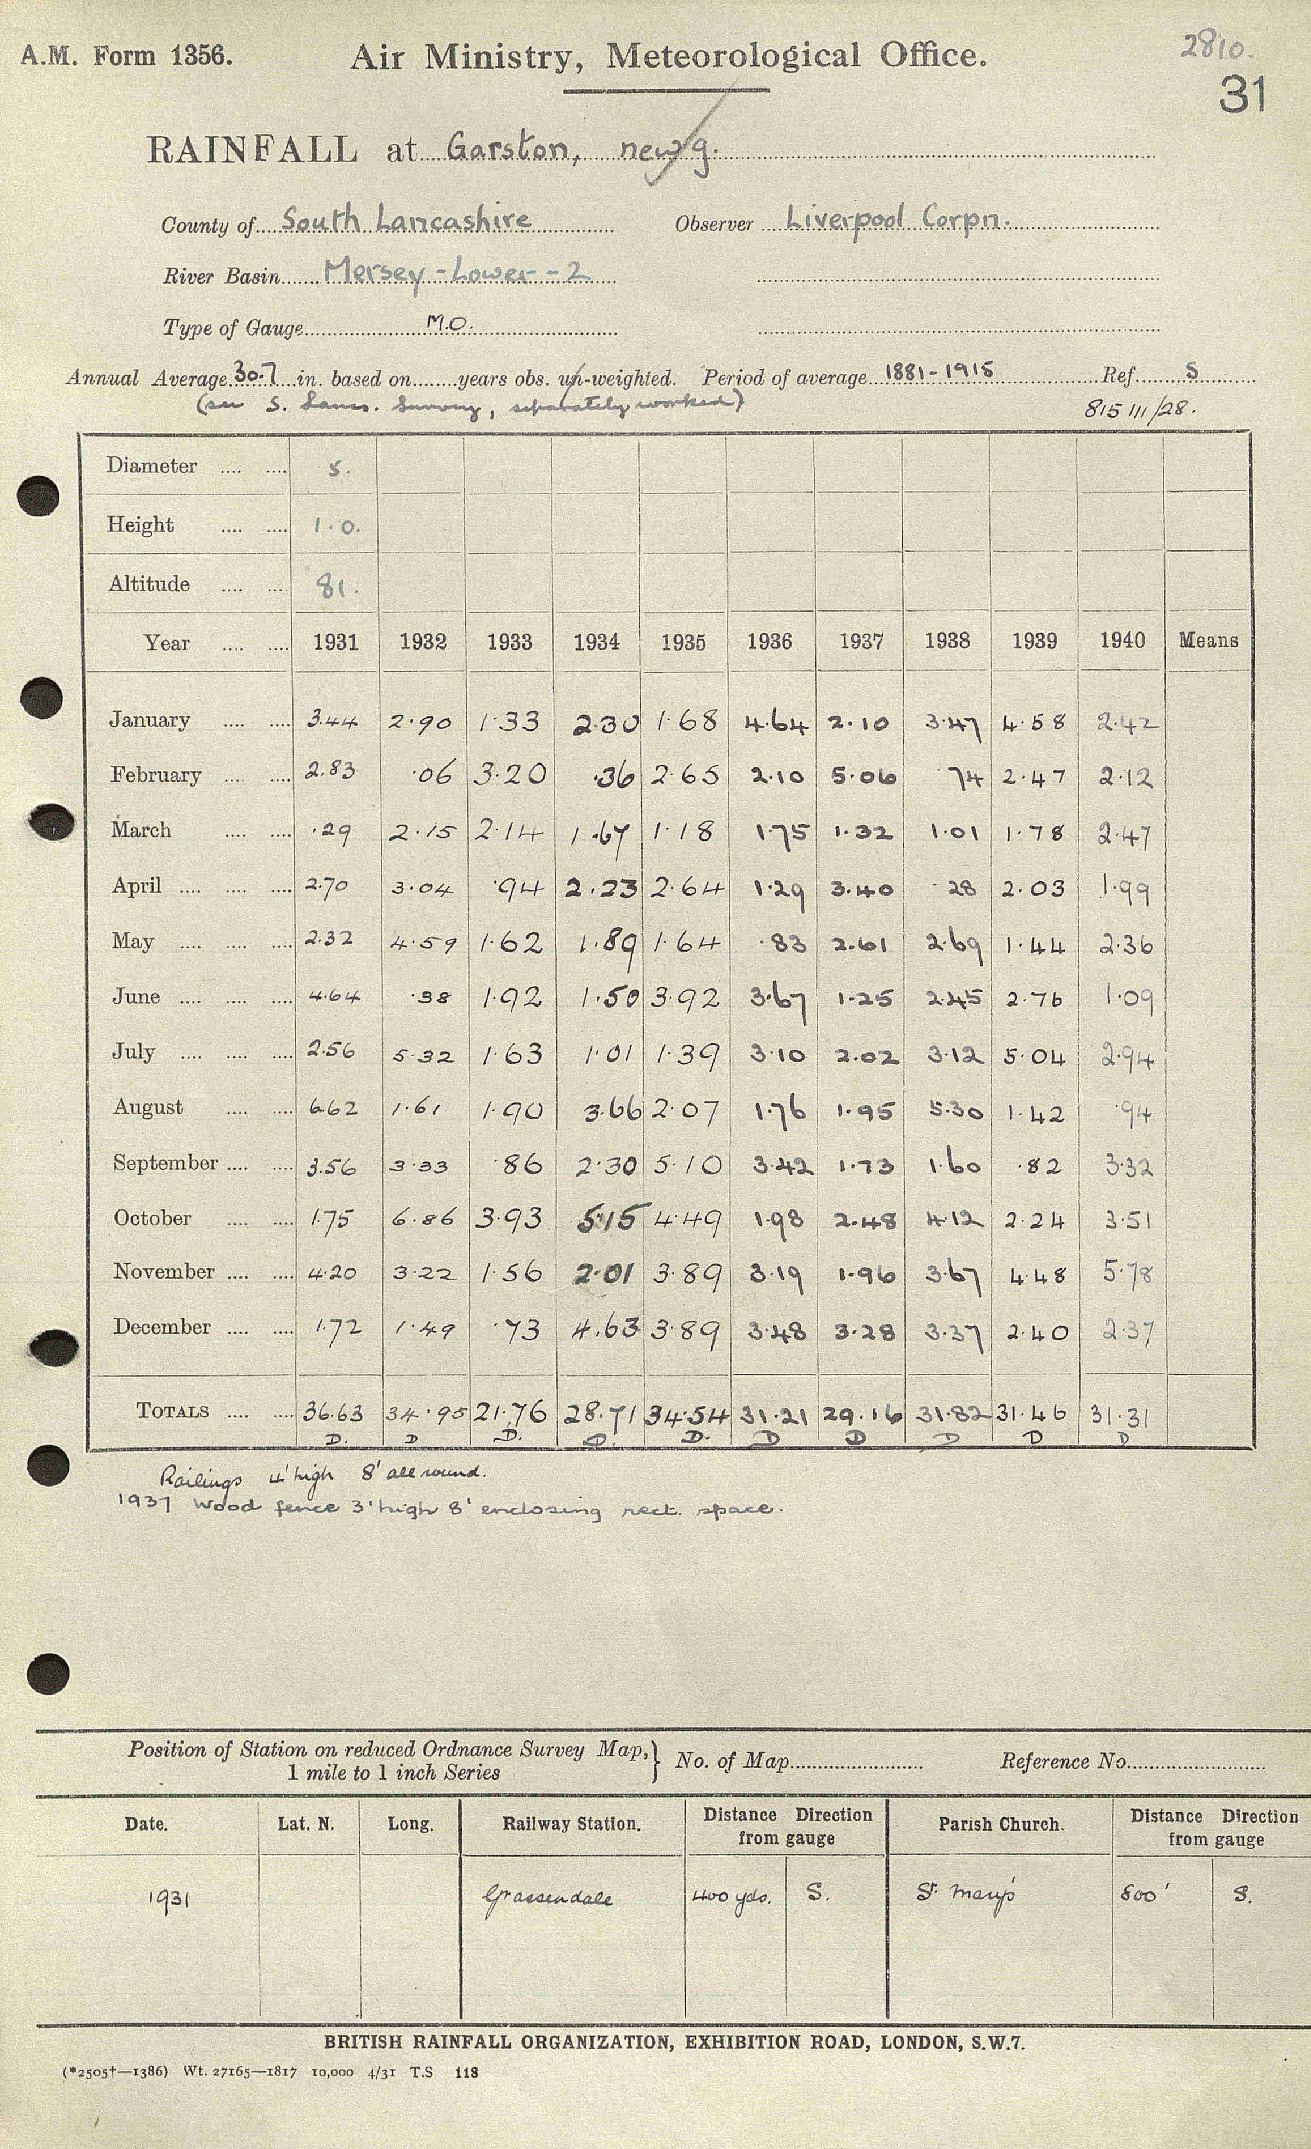 A.M. Form 1356.
Air Ministry, Meteorological Office.
2810.
31
RAINFALL at Garston, new g.
County of South Lancashire Observer Liverpool Corpn.
River Basin Mersey - Lower - 2
Type of Gauge M.O.
Annual Average 30.7 in. based on years obs. un-weighted. Period of average 1881-1915 Ref. S
(see S. Lancs. Survey, separately worked) 815 III/28.
Diameter 5.
Height 1.0.
Altitude 81.
Year 1931 1932 1933 1934 1935 1936 1937 1938 1939 1940 Means
January 3.44 2.90 1.33 2.30 1.68 4.64 2.10 3.47 4.58 2.42
February 2.83 .06 3.20 .36 2.65 2.10 5.06 .74 2.47 2.12
March .29 2.15 2.14 1.67 1.18 1.75 1.32 1.01 1.78 2.47
April 2.70 3.04 .94 2.23 2.64 1.29 3.40 .28 2.03 1.99
May 2.32 4.59 1.62 1.89 1.64 .83 2.61 2.69 1.44 2.36
June 4.64 .38 1.92 1.50 3.92 3.67 1.25 2.45 2.76 1.09
July 2.56 5.32 1.63 1.01 1.39 3.10 2.02 3.12 5.04 2.94
August 6.62 1.61 1.90 3.66 2.07 1.76 1.95 5.30 1.42 .94
September 3.56 3.33 .86 2.30 5.10 3.42 1.73 1.60 .82 3.32
October 1.75 6.86 3.93 5.15 4.49 1.98 2.48 4.12 2.24 3.51
November 4.20 3.22 1.56 2.01 3.89 3.19 1.96 3.67 4.48 5.78
December 1.72 1.49 .73 4.63 3.89 3.48 3.28 3.37 2.40 2.37
TOTALS 36.63 34.95 21.76 28.71 34.54 31.21 29.16 31.82 31.46 31.31
D. D D. D. D. D D D D D
Railings 4' high 8' all round.
1937 Wood fence 3' high 8' enclosing rect. space.
Position of Station on reduced Ordnance Survey Map, 1 mile to 1 inch Series } No. of Map Reference No.
Date. Lat. N. Long. Railway Station. Distance Direction from gauge Parish Church. Distance Direction from gauge
1931 Grassendale 400 yds. S. St. Mary's 800' S.
BRITISH RAINFALL ORGANIZATION, EXHIBITION ROAD, LONDON, S.W.7.
(*2505†—1386) Wt. 27165—1817 10,000 4/31 T.S 118